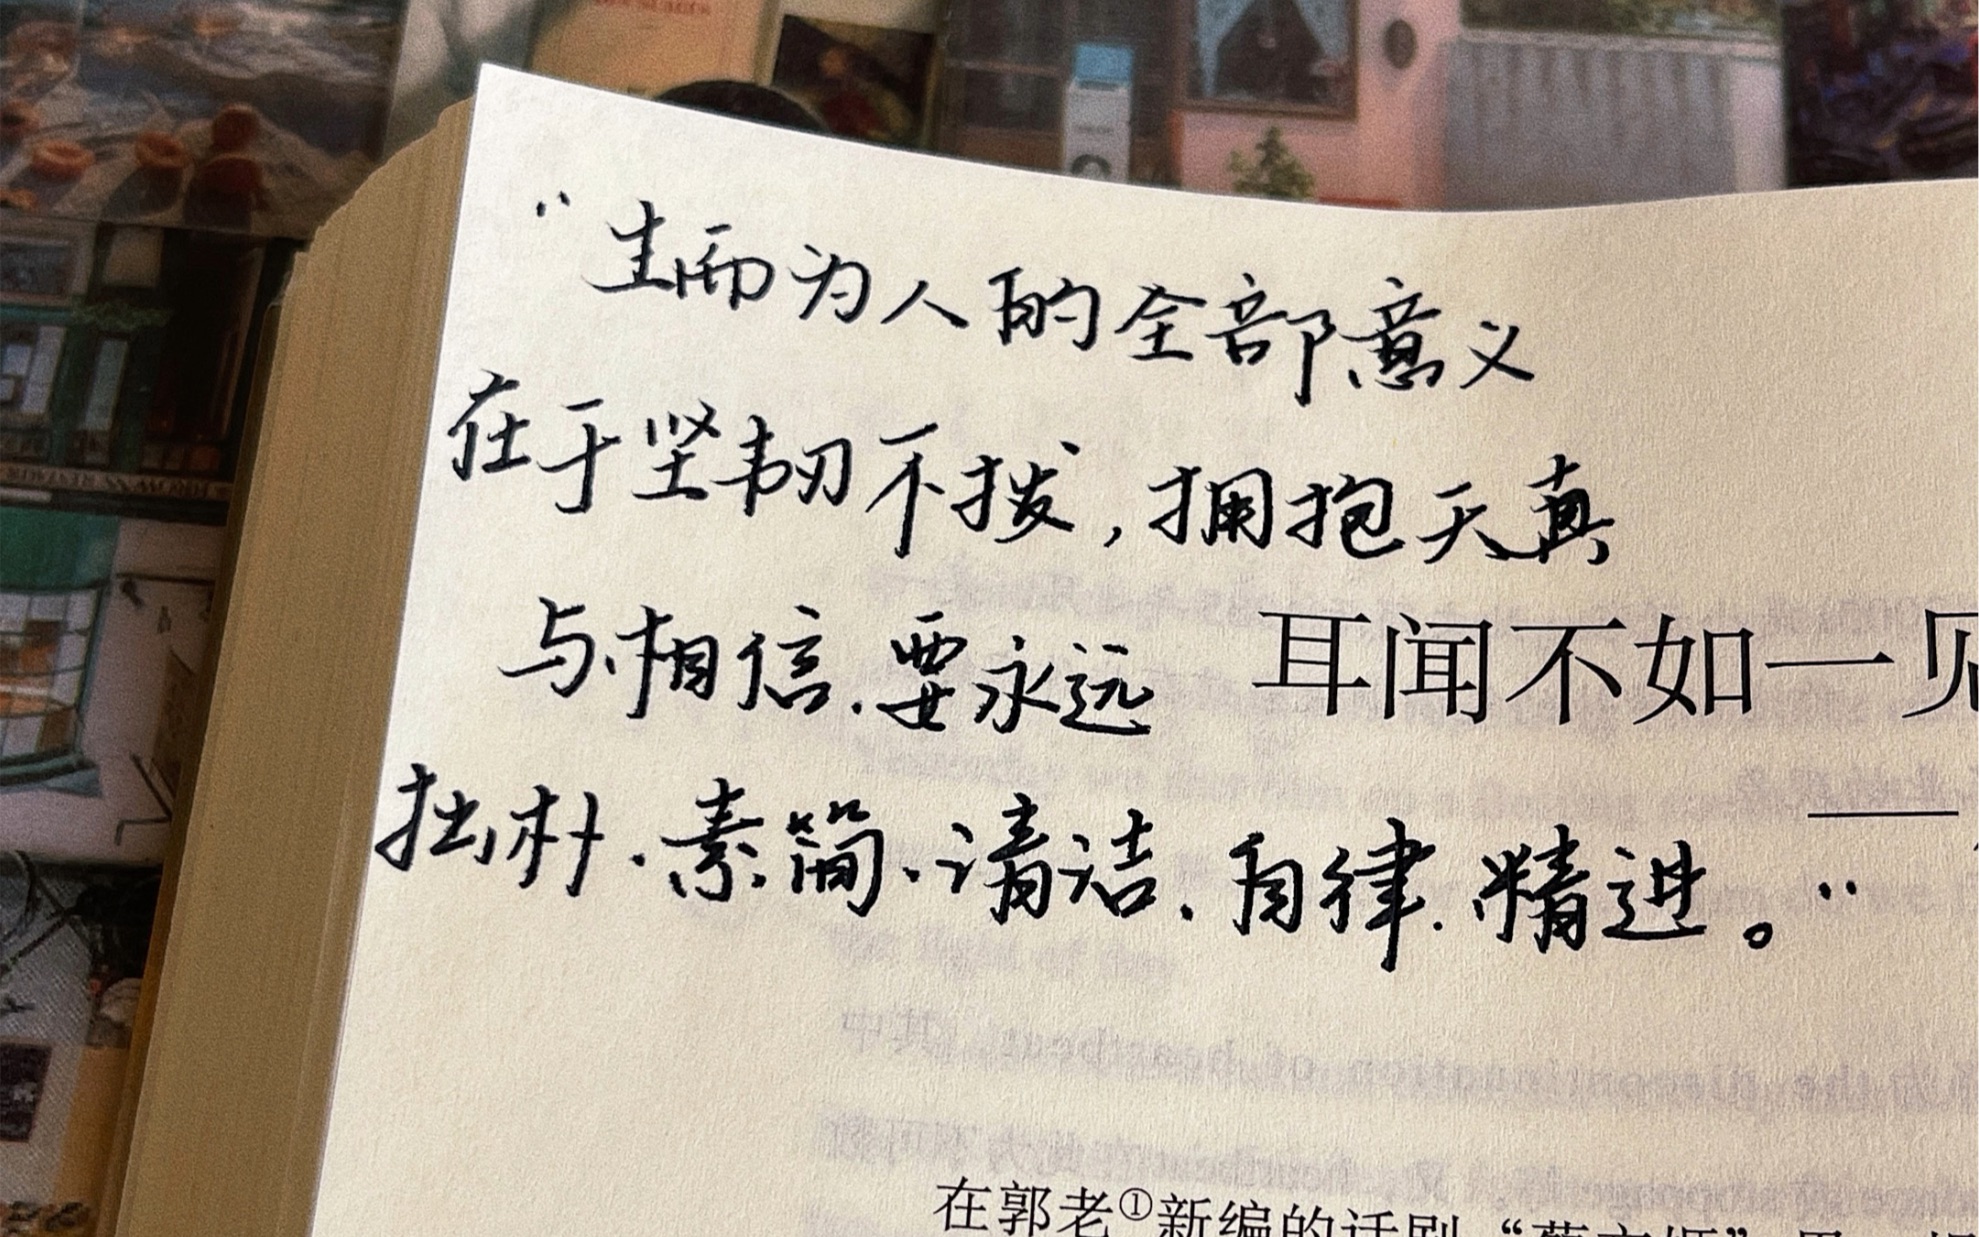 “生而为人的全部意义
在于坚韧不拨，拥抱天真
与相信.要永远
耳闻不如一见
拙朴.素简.清洁.自律.精进。”
——
在郭老①新编的话剧“蔡文姬”里